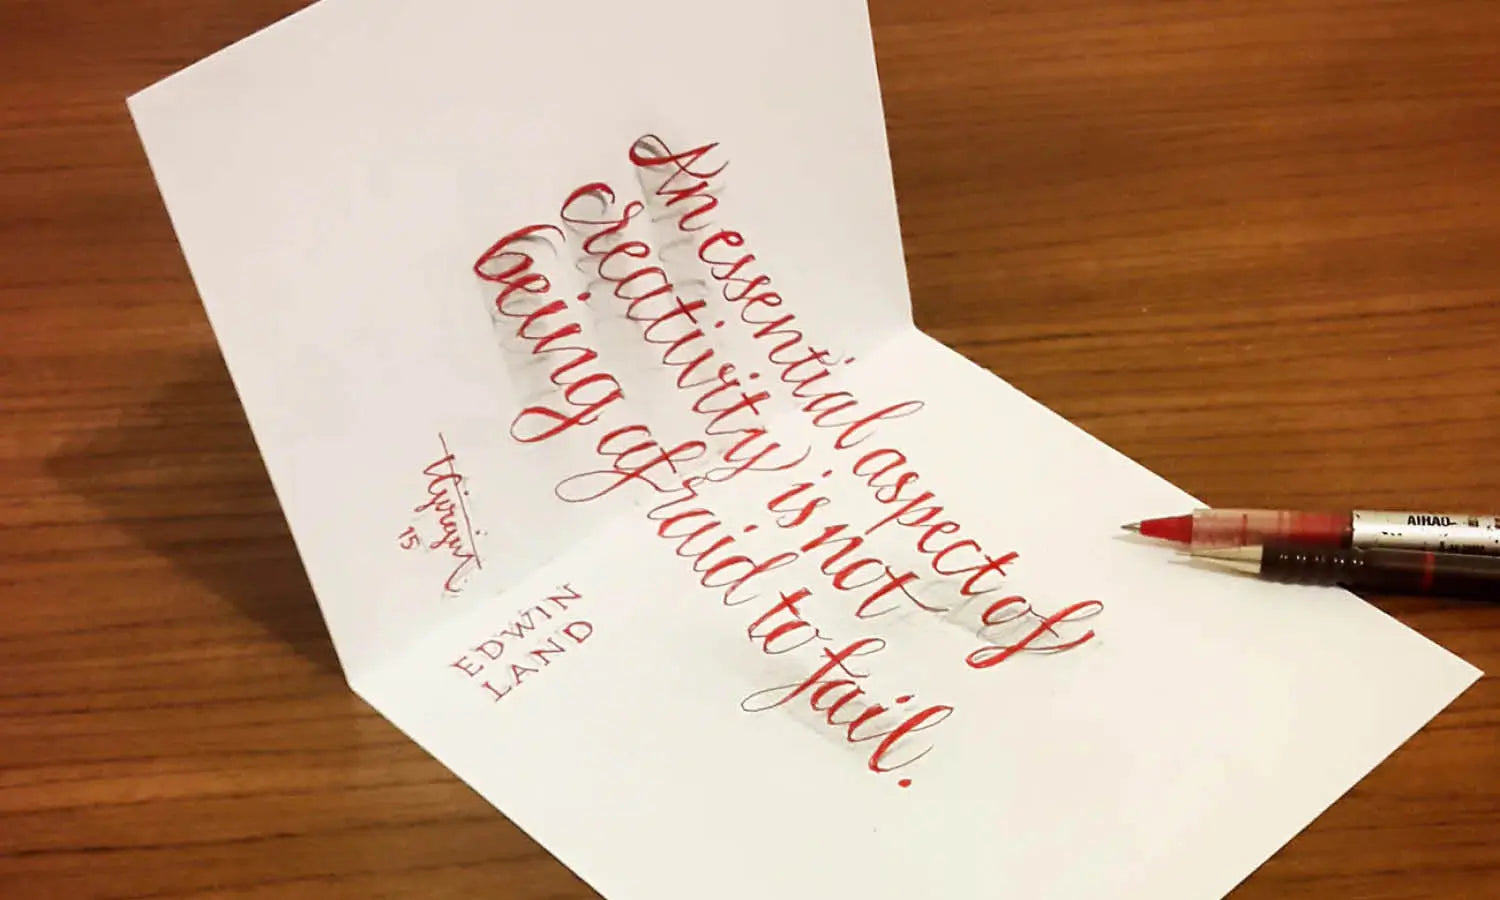 An essential aspect of
creativity is not
being afraid to fail.
15
EDWIN
LAND
AIHAO